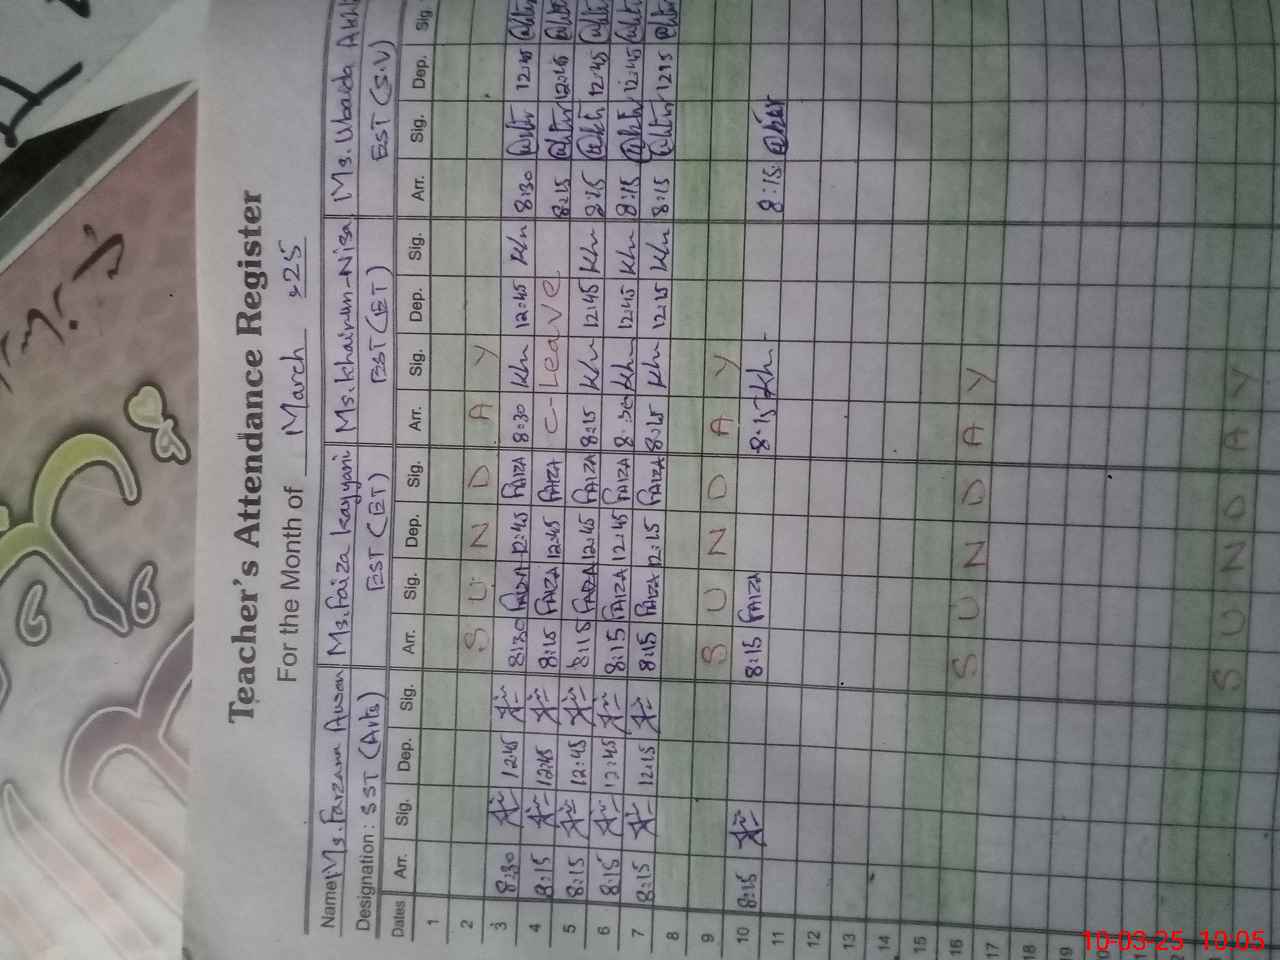 Teacher's Attendance Register
For the Month of March 25
Name Ms. Farzana Awan Ms. Faiza Kayyani Ms. Khairun-Nisa Ms. Ubaida
Designation: SST (Arts) EST (ET) EST (ET) EST (S.V)
Dates Arr. Sig. Dep. Sig. Arr. Sig. Dep. Sig. Arr. Sig. Dep. Sig. Arr. Sig. Dep. Sig.
1
2 SUNDAY
3 8:30 12:45 8:30 FAIZA 12:45 FAIZA 8:30 Khn 12:45 Khn 8:30 12:45
4 8:15 12:45 8:15 FAIZA 12:45 FAIZA C-Leave 8:15 12:45
5 8:15 12:45 8:15 FAIZA 12:45 FAIZA 8:15 Khn 12:45 Khn 8:15 12:45
6 8:15 12:45 8:15 FAIZA 12:45 FAIZA Khn 12:45 Khn 8:15 12:45
7 8:15 12:15 8:15 FAIZA 12:15 FAIZA 8:15 Khn 12:15 Khn 8:15 12:15
8
9 SUNDAY
10 8:15 8:15 FAIZA 8:15 Khn 8:15
11
12
13
14
15
16 SUNDAY
17
18
19
10-03-25 10:05
SUNDAY